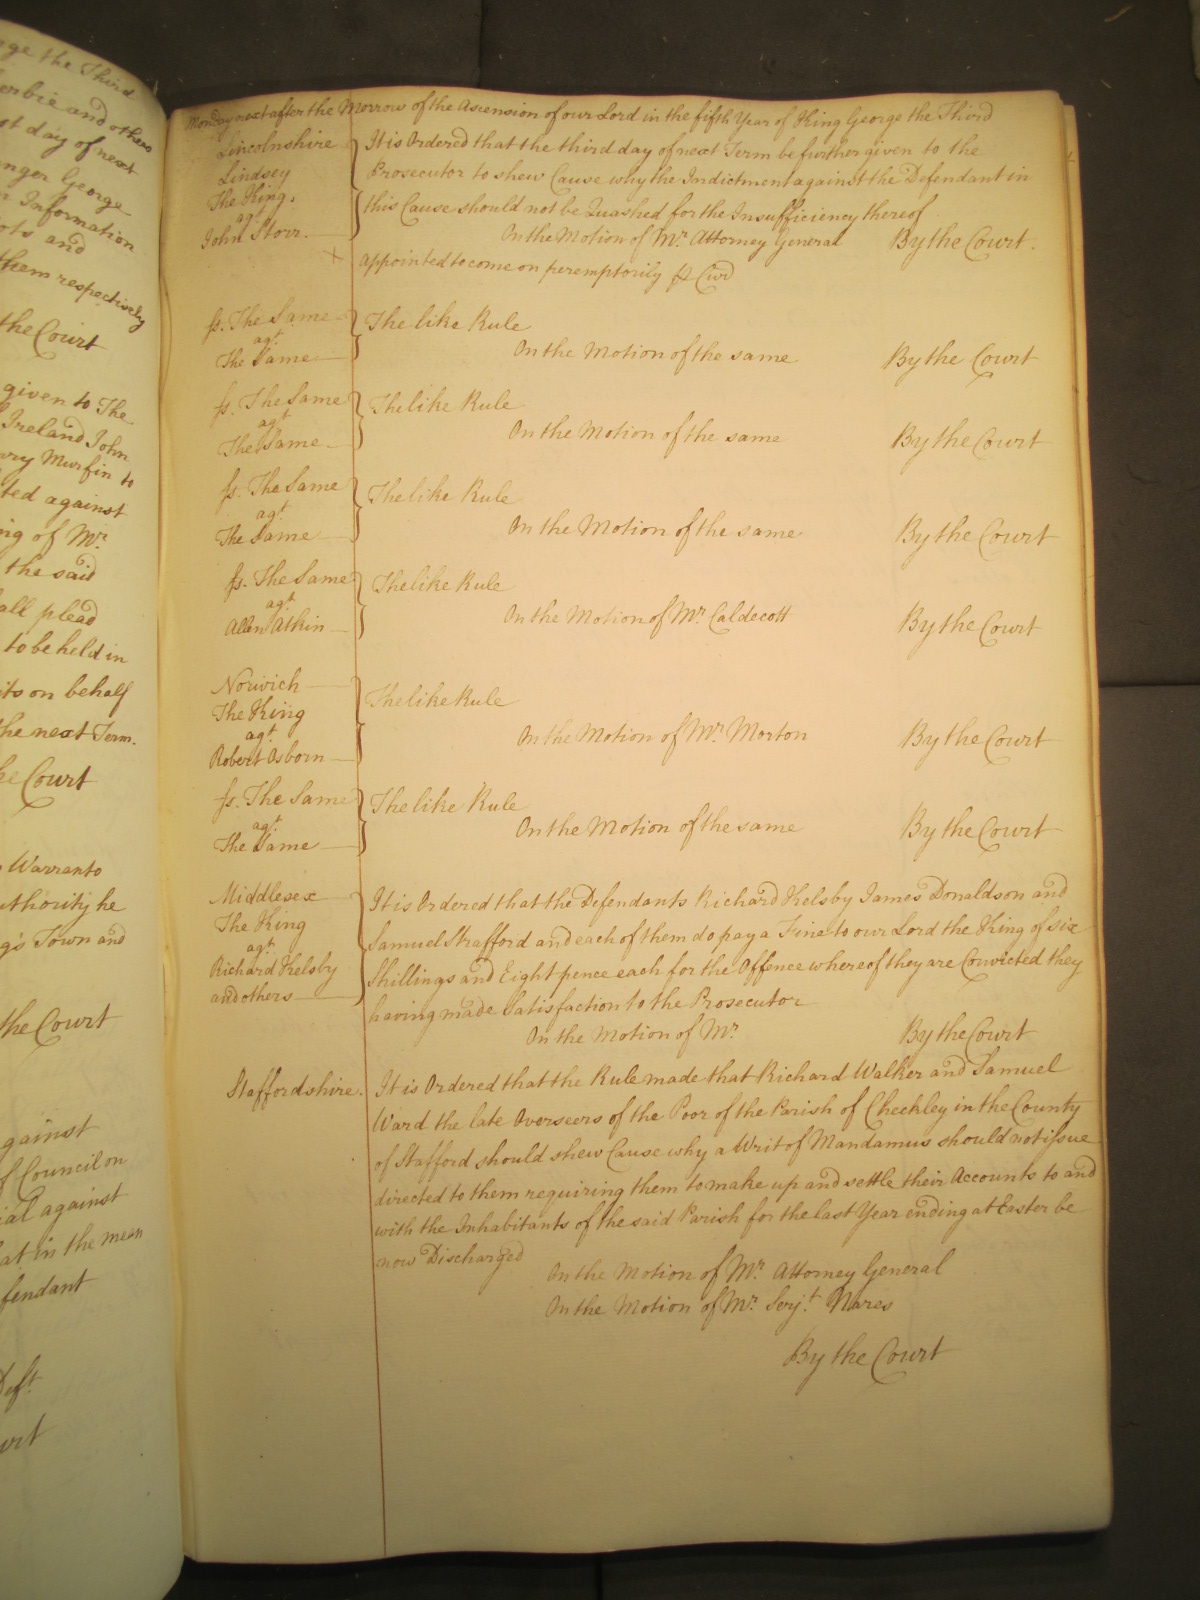 ge the Third
enbie and others
st day of next
nger George
n Information
ots and
them respectively
the Court
given to The
Ireland John
ury Murfin to
ted against
ng of Mr.
the said
all plead
to be held in
its on behalf
the next Term.
he Court
Warranto
uthority he
g's Town and
the Court
against
f Council on
ial against
at in the mean
fendant
Deft.
urt
Monday next after the Morrow of the Ascension of our Lord in the fifth Year of King George the Third
Lincolnshire It is Ordered that the third day of next Term be further given to the
Lindsey Prosecutor to shew Cause why the Indictment against the Defendant in
The King. this Cause should not be Quashed for the Insufficiency thereof
agt.
John Storr. On the Motion of Mr. Attorney General By the Court.
x appointed to come on peremptorily
fs. The Same The like Rule
agt.
The Same On the Motion of the same By the Court
fs. The Same The like Rule
agt.
The Same On the Motion of the same By the Court
fs. The Same The like Rule
agt.
The Same On the Motion of the same By the Court
fs. The Same The like Rule
agt.
Allen Atkin On the Motion of Mr. Caldecott By the Court
Norwich The like Rule
The King
agt.
Robert Osborn On the Motion of Mr. Morton By the Court
fs. The Same The like Rule
agt.
The Same On the Motion of the same By the Court
Middlesex It is Ordered that the Defendants Richard Kelsby James Donaldson and
The King Samuel Strafford and each of them do pay a Fine to our Lord the King of six
agt.
Richard Kelsby Shillings and Eight pence each for the Offence whereof they are Convicted they
and others having made Satisfaction to the Prosecutor
On the Motion of Mr. By the Court
Staffordshire. It is Ordered that the Rule made that Richard Walker and Samuel
Ward the late Overseers of the Poor of the Parish of Checkley in the County
of Stafford should shew Cause why a Writ of Mandamus should not issue
directed to them requiring them to make up and settle their Accounts to and
with the Inhabitants of the said Parish for the last Year ending at Easter be
now Discharged
On the Motion of Mr. Attorney General
On the Motion of Mr. Serjt. Nares
By the Court